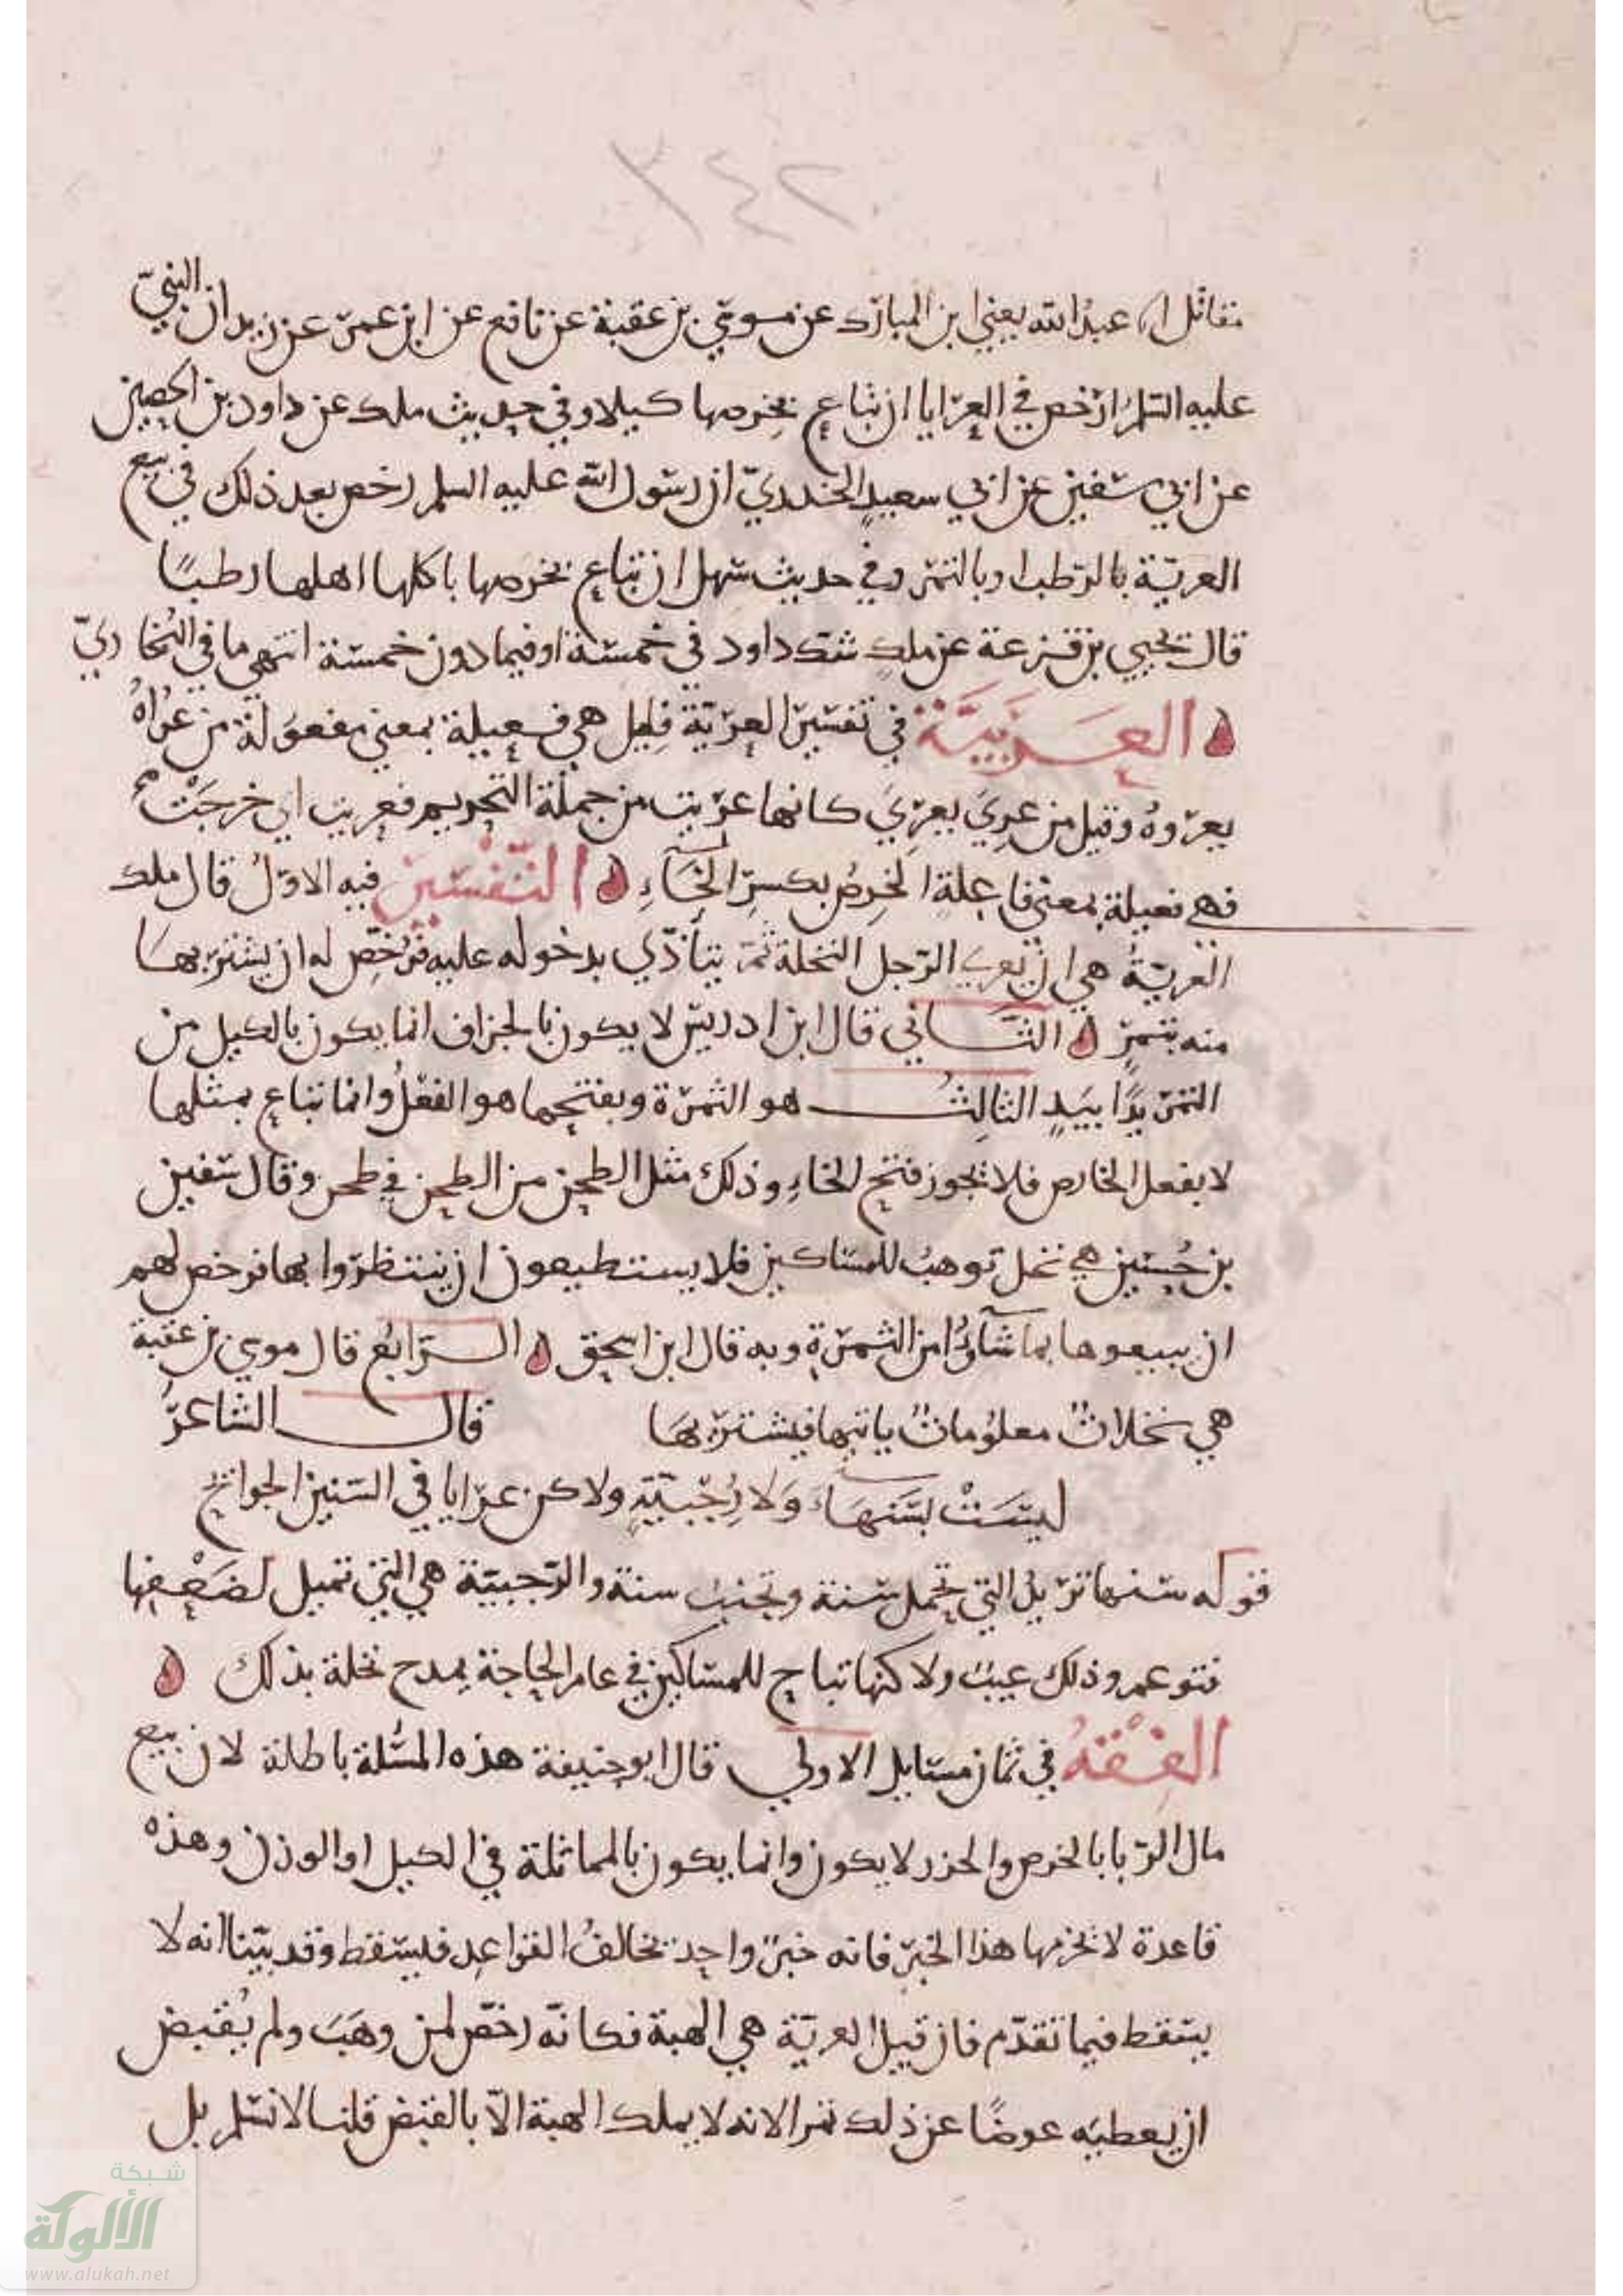 ٢٤٣
مقاتل انا عبد الله يعني ابن المبارك عن موسي بن عقبة عن نافع عن ابن عمر عن زيد ان النبيّ
عليه السلم ارخص في العرايا ان تباع بخرصها كيلا وفي حديث ملك عن داود بن الحصين
عن ابي سفين عن ابي سعيدٍ الخدديّ ان رسول الله عليه السلم رخص بعد ذلك في بيع
العريّة بالرّطب او بالتمر وفي حديث سهل ان تباع بخرصها ياكلها اهلها رطبًا
قال يحيي بن قزعة عن ملك شك داود في خمسة او فيما دون خمسة انتهي ما في البُخاريّ
العَربيَّة في تفسير العريّة قيل هي فعيلة بمعني مفعولة من عَراهُ
يعروهُ وقيل من عري يعري كانها عريت من جملة التحريم فعريت اي خرجَتْ
فهي فعيلة بمعني فاعلةٍ الخِرصُ بكسر الخَآءِ التّفْسير فيه الاوّل قال ملك
العريّةُ هي ان يُعري الرّجل النخلة ثمّ يتأذّي بدخوله عليه فرخّص له ان يشتريهَا
منه بتمرٍ الثَّاني قال ابن ادريس لا يكون بالجزاف انما يكون بالكيل من
التمر يدًا بيَدٍ الثالِثُ هو الثمرة وبفتحها هو الفعْلُ وانما تباع بمثلها
لا بفعل الخارص فلا يجوز فتح الخاءِ وذلك مثل الطحن من الطحن في طحن وقال سفين
بن حُسين هي نخل توهبُ للمساكين فلا يستطيعون ان ينتظروا بها فرخص لهم
ان يبيعوها بما شآؤُا من الثمرةِ وبه قال ابن اسحق الرّابعُ قال موسي بن عقبة
هي نخلاتٌ معلوُماتٌ ياتيها فيشتريهَا قال الشاعرُ
ليسَتْ بسَنهَاءَ وَلا رُجّبيّةٍ ولاكن عرايا في السّنين الجوائح
قوله سنهاء تريدُ التي تحمل سنة وتجنبُ سنة والرّجبيّة هي التي تميل لضعْفِها
فتدعم وذلك عيبٌ ولاكنها تباح للمساكين في عام الحاجة يمدح نخلة بذلك
الفِقْهُ في ثمان مسايل الاولي قال ابو حنيفة هذه المسْئلة باطلة لان بيع
مال الرّبا بالخرص والحزر لا يكون وانما يكون بالمماثلة في الكيل او الوزن وهذه
قاعدة لا يخرمها هذا الخبر فانه خبرٌ واحد يخالفُ القواعِد فليسقط وقد بيّنا انه لا
يسقط فيما تقدّم فان قيل العريّة هي الهبة فكانّه رخّص لمن وهَبَ ولم يُقْبض
ان يعطيَه عوضًا عن ذلك تمرا لانه لا يملك الهبة الّا بالقبض قلنا لا نسلم بل
شبكة
الألوكة
www.alukah.net